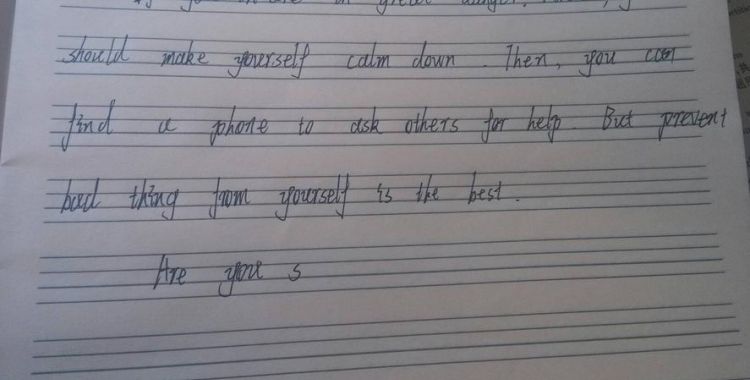 you are in great danger
should make yourself calm down. Then, you can
find a phone to ask others for help. But prevent
bad thing from yourself is the best.
Are you s